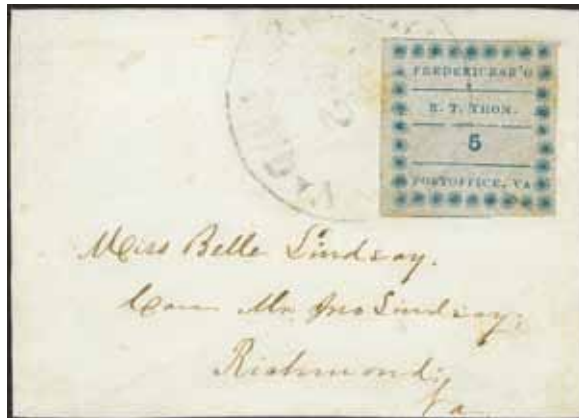 FREDERICKSB'G
R. T. THOM.
5
POSTOFFICE, VA
Miss Belle Lindsay.
Care Mr Jno Lindsay,
Richmond,
Va